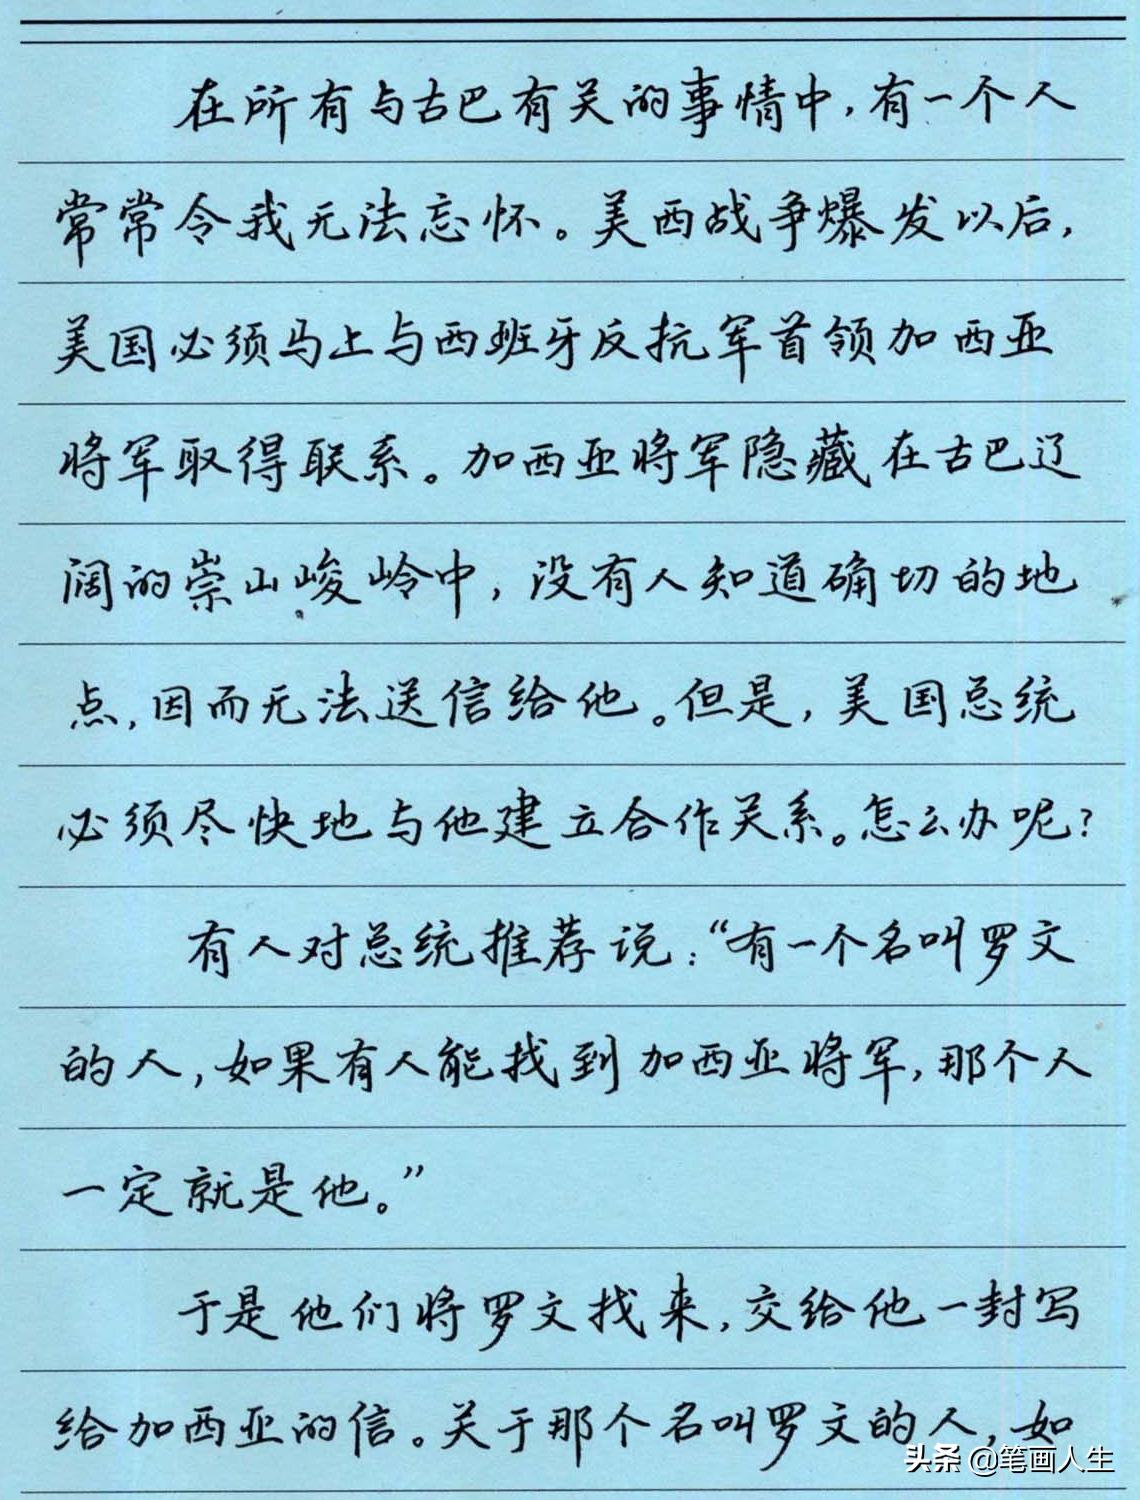 在所有与古巴有关的事情中，有一个人
常常令我无法忘怀。美西战争爆发以后，
美国必须马上与西班牙反抗军首领加西亚
将军取得联系。加西亚将军隐藏在古巴辽
阔的崇山峻岭中，没有人知道确切的地
点，因而无法送信给他。但是，美国总统
必须尽快地与他建立合作关系。怎么办呢？
有人对总统推荐说：“有一个名叫罗文
的人，如果有人能找到加西亚将军，那个人
一定就是他。”
于是他们将罗文找来，交给他一封写
给加西亚的信。关于那个名叫罗文的人，如
头条 @笔画人生